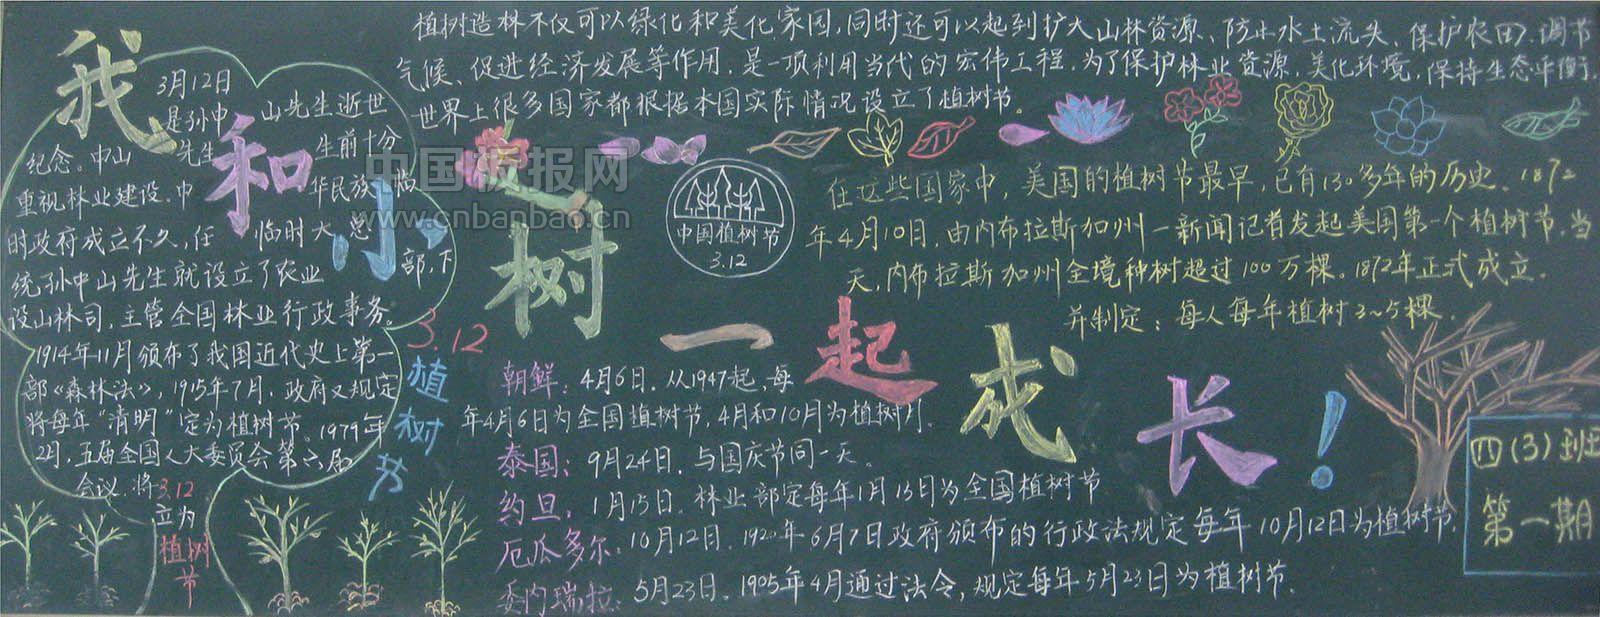 我和小树一起成长!
植树造林不仅可以绿化和美化家园,同时还可以起到扩大山林资源、防止水土流失、保护农田、调节
气候、促进经济发展等作用,是一项利用当代的宏伟工程,为了保护林业资源,美化环境,保持生态平衡,
世界上很多国家都根据本国实际情况设立了植树节。
3月12日
是孙中山先生逝世
纪念。中山先生生前十分
重视林业建设。中华民族临
时政府成立不久,任临时大总
统孙中山先生就设立了农业部,下
设山林司,主管全国林业行政事务。
1914年11月颁布了我国近代史上第一
部《森林法》,1915年7月,政府又规定
将每年“清明”定为植树节。1979年
2月,五届全国人大委员会第六届
会议,将3.12
立为
植树
节
3.12
植树节
中国植树节
3.12
在这些国家中,美国的植树节最早,已有130多年的历史。1872
年4月10日,由内布拉斯加州一新闻记者发起美国第一个植树节,当
天,内布拉斯加州全境种树超过100万棵。1872年正式成立。
并制定:每人每年植树3~5棵.
朝鲜:4月6日.从1947起,每
年4月6日为全国植树节,4月和10月为植树月.
泰国:9月24日,与国庆节同一天。
约旦:1月15日.林业部定每年1月15日为全国植树节
厄瓜多尔:10月12日.1920年6月7日政府颁布的行政法规定每年10月12日为植树节.
委内瑞拉:5月23日.1905年4月通过法令,规定每年5月23日为植树节.
四(3)班
第一期
中国板报网
www.cnbanbao.cn